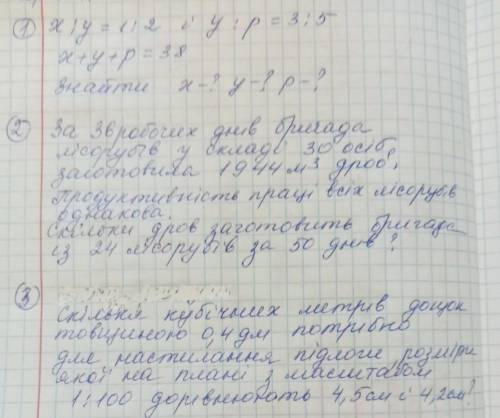 ① x : y = 1 : 2 і y : p = 3 : 5
x + y + p = 38
Знайти x - ? y - ? p - ?
② За 36 робочих днів бригада
лісорубів у складі 30 осіб
заготовила 1944 м³ дров.
Продуктивність праці всіх лісорубів
однакова.
Скільки дров заготовить бригада
із 24 лісорубів за 50 днів?
③ Скільки кубічних метрів дощок
товщиною 0,4 дм потрібно
для настилання підлоги розміри
якої на плані з масштабом
1:100 дорівнюють 4,5 см і 4,2 см?